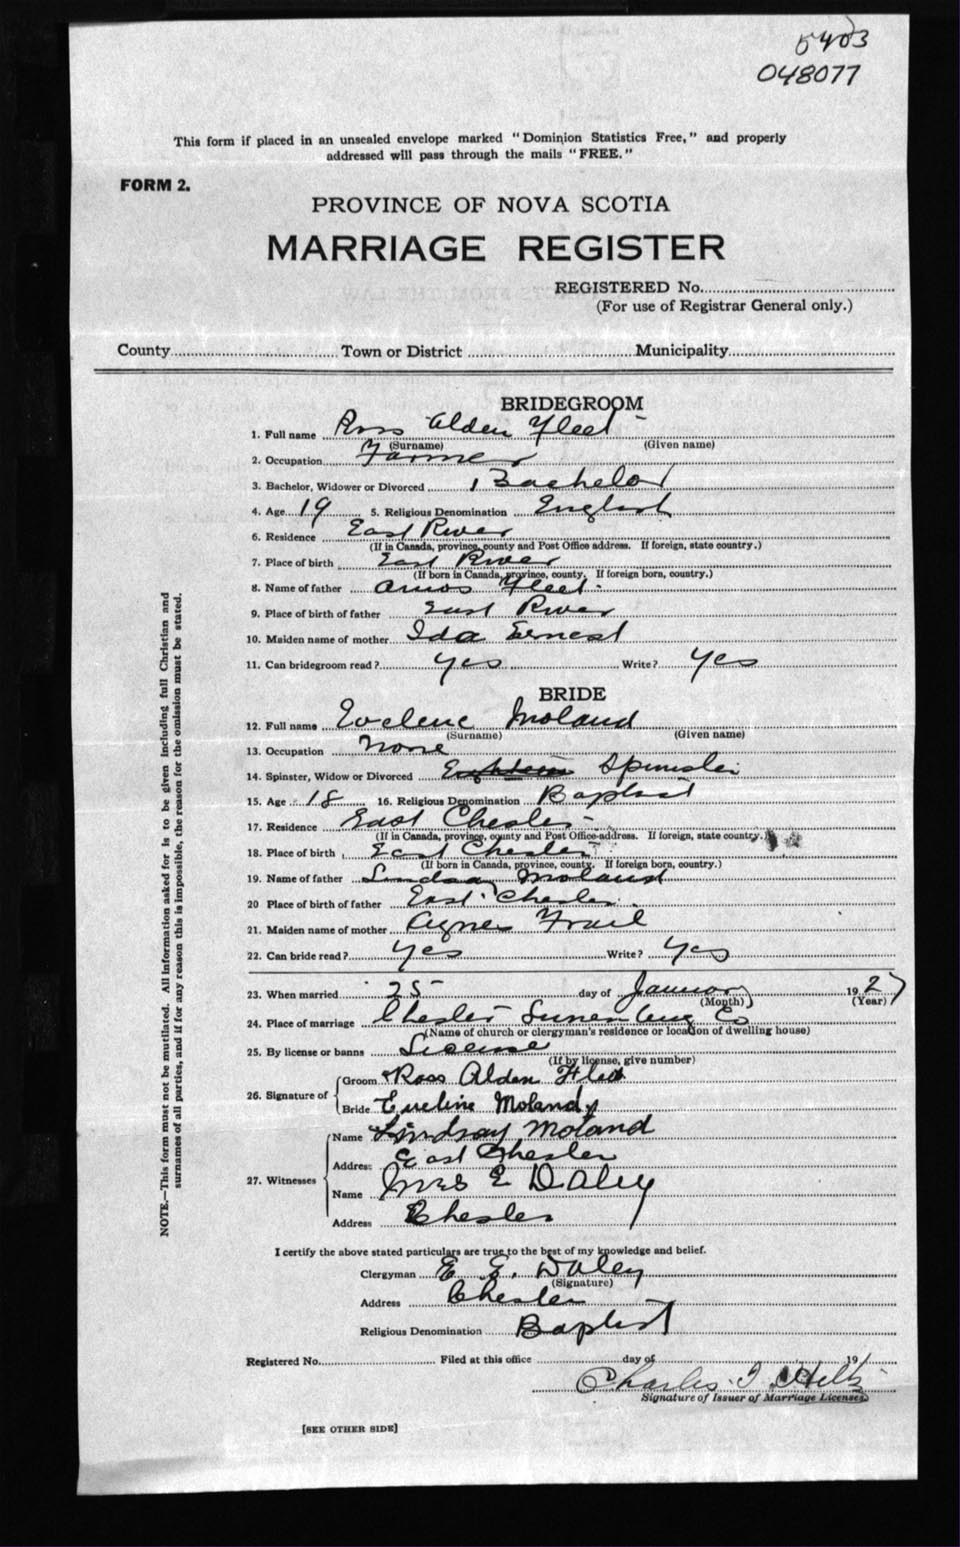 5403
048077
This form if placed in an unsealed envelope marked "Dominion Statistics Free," and properly
addressed will pass through the mails "FREE."
FORM 2.
PROVINCE OF NOVA SCOTIA
MARRIAGE REGISTER
REGISTERED No.
(For use of Registrar General only.)
County Town or District Municipality
BRIDEGROOM
1. Full name Ross Alden Fleet
(Surname) (Given name)
2. Occupation Farmer
3. Bachelor, Widower or Divorced Bachelor
4. Age 19 5. Religious Denomination English
6. Residence East River
(If in Canada, province, county and Post Office address. If foreign, state country.)
7. Place of birth East River
(If born in Canada, province, county. If foreign born, country.)
8. Name of father Amos Fleet
9. Place of birth of father East River
10. Maiden name of mother Ida Ernest
11. Can bridegroom read? yes Write? yes
BRIDE
12. Full name Evelene Moland
(Surname) (Given name)
13. Occupation None
14. Spinster, Widow or Divorced Eighteen Spinster
15. Age 18 16. Religious Denomination Baptist
17. Residence East Chester
(If in Canada, province, county and Post Office address. If foreign, state country.)
18. Place of birth East Chester
(If born in Canada, province, county. If foreign born, country.)
19. Name of father Lindsay Moland
20 Place of birth of father East Chester
21. Maiden name of mother Agnes Frail
22. Can bride read? yes Write? yes
23. When married 25 day of January 1927
(Month) (Year)
24. Place of marriage Chester Lunenburg Co
(Name of church or clergyman's residence or location of dwelling house)
25. By license or banns License
(If by license, give number)
26. Signature of
Groom Ross Alden Fleet
Bride Eveline Moland
27. Witnesses
Name Lindsay Moland
Address East Chester
Name Mrs E Daley
Address Chester
I certify the above stated particulars are true to the best of my knowledge and belief.
Clergyman E. E. Daley
(Signature)
Address Chester
Religious Denomination Baptist
Registered No. Filed at this office day of 19
Charles
Signature of Issuer of Marriage Licenses
[SEE OTHER SIDE]
NOTE.—This form must not be mutilated. All information asked for is to be given including full Christian and
surnames of all parties, and if for any reason this is impossible, the reason for the omission must be stated.